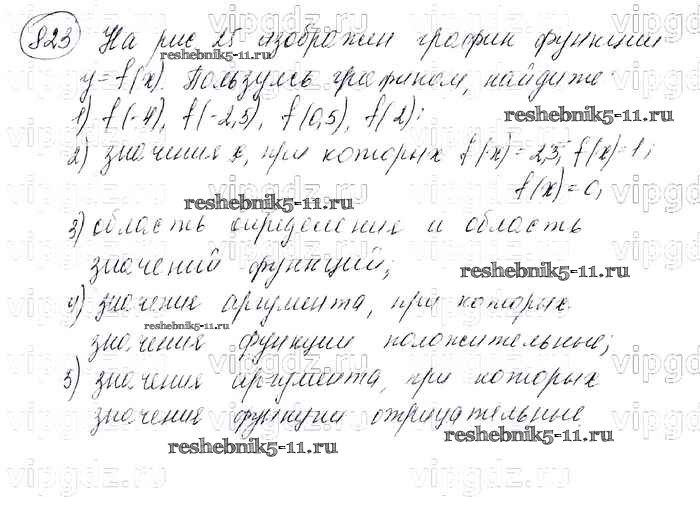 823 На рис 25 изображен график функции
y=f(x). Пользуясь графиком, найдите
1) f(-4), f(-2,5), f(0,5), f(2);
2) значения x, при которых f(x)=2,5; f(x)=1;
f(x)=0,
3) область определения и область
значений функций;
4) значение аргумента, при которых
значения функции положительные;
5) значения аргумента, при которых
значение функции отрицательные
reshebnik5-11.ru
reshebnik5-11.ru
reshebnik5-11.ru
reshebnik5-11.ru
reshebnik5-11.ru
reshebnik5-11.ru
reshebnik5-11.ru
vipgdz.ru